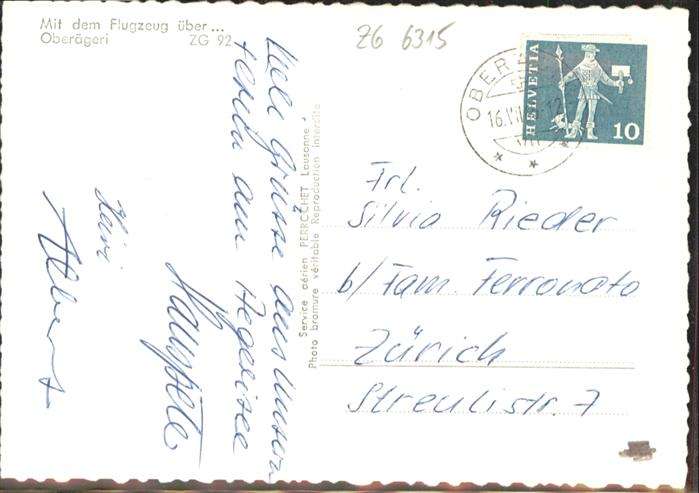 Mit dem Flugzeug über...
Oberägeri ZG 92
ZG 6315
OBER
16.VII
HELVETIA
10
Viele Grüsse aus unsern
Ferien am Aegerisee
Hanspeter
Heiri
Albert
Service aérien PERROCHET Lausanne
Photo bromure véritable Reproduction interdite
Frl.
Silvia Rieder
b/Fam. Ferronato
Zürich
Streulistr. 7